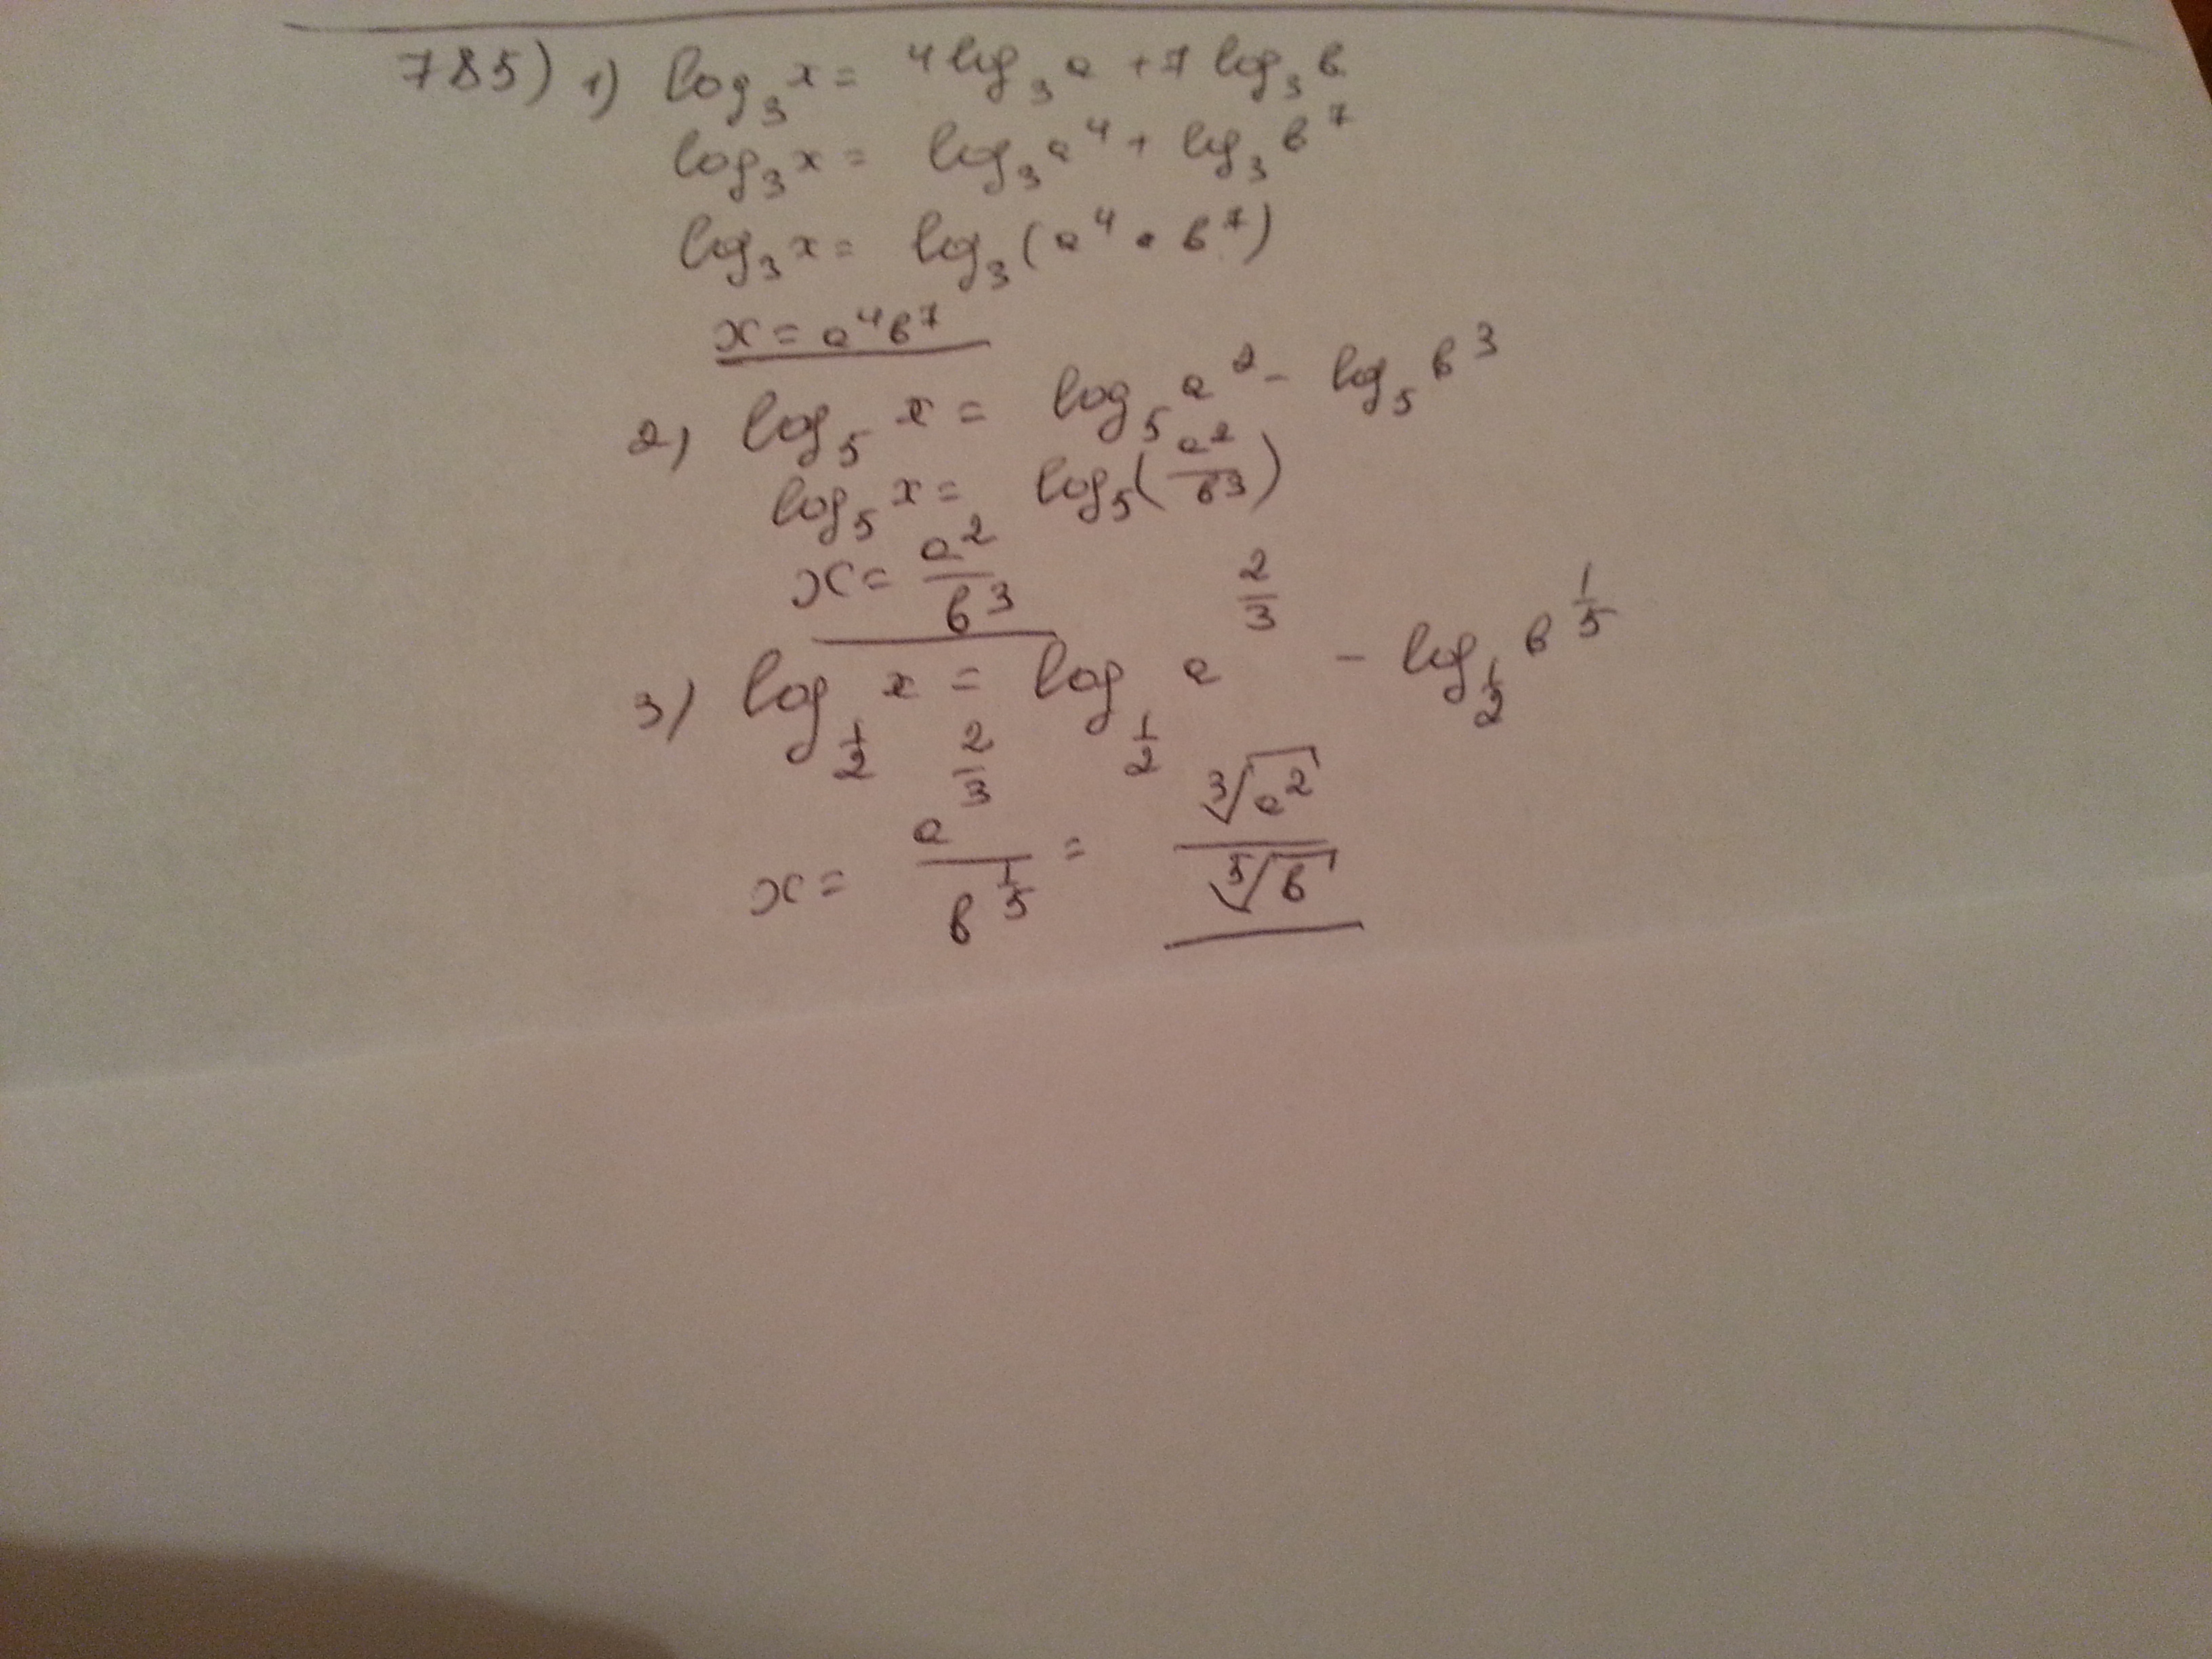 785) 1) log₃ x = 4 log₃ a + 7 log₃ b
log₃ x = log₃ a⁴ + log₃ b⁷
log₃ x = log₃ (a⁴ · b⁷)
x = a⁴b⁷
2) log₅ x = log₅ a² - log₅ b³
log₅ x = log₅ (a²/b³)
x = a²/b³
3) log_{1/2} x = log_{1/2} a^{2/3} - log_{1/2} b^{1/5}
x = a^{2/3}/b^{1/5} = ∛(a²)/⁵√b